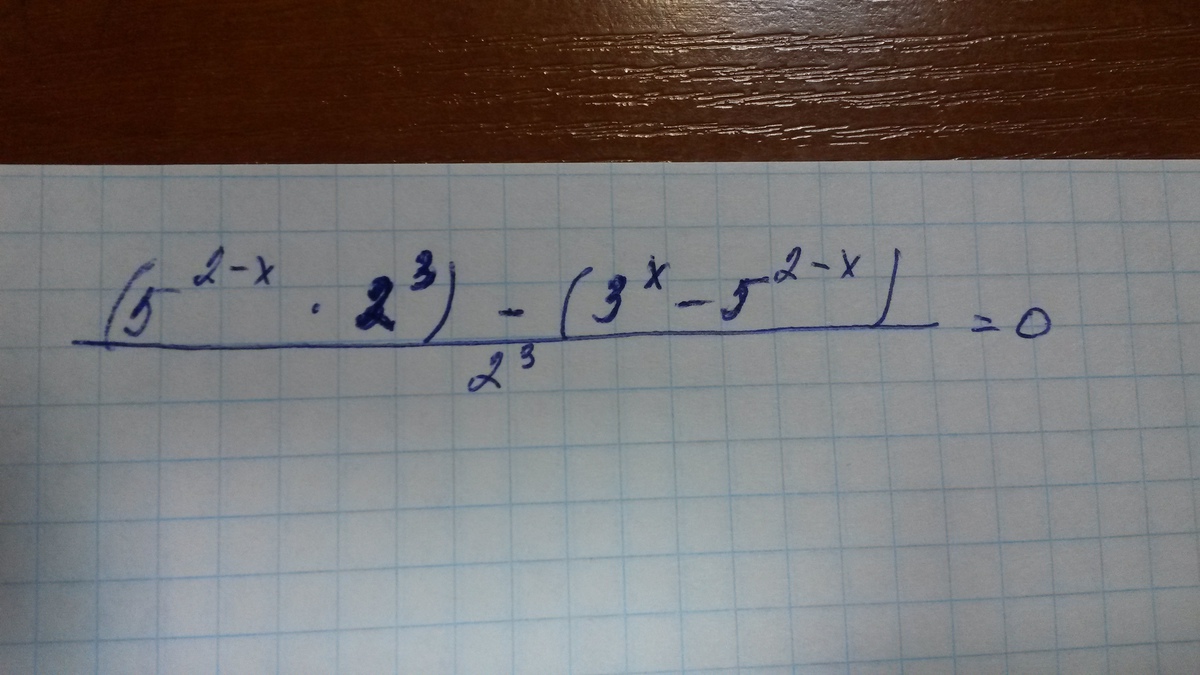 (5^{2-x} · 2^3) - (3^x - 5^{2-x}) = 0
2^3